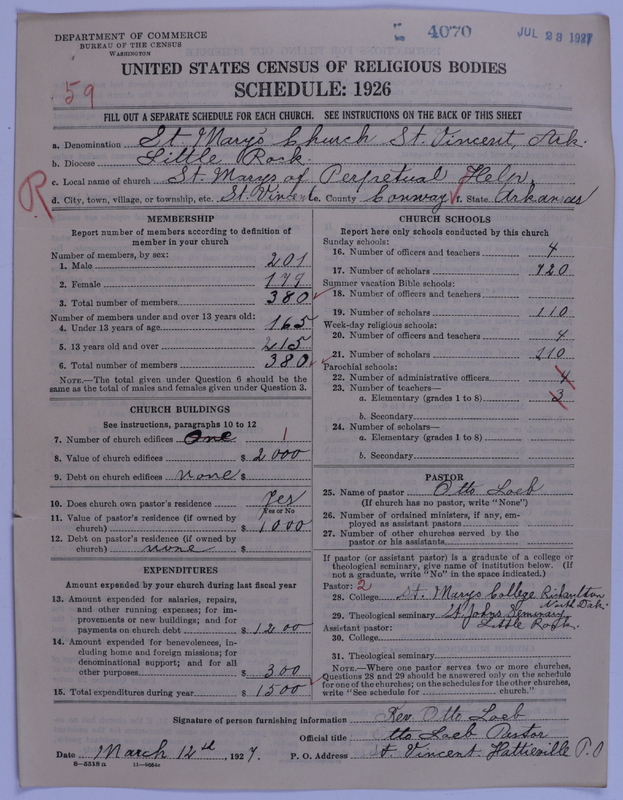 4070
JUL 23 1927
DEPARTMENT OF COMMERCE
BUREAU OF THE CENSUS
WASHINGTON
UNITED STATES CENSUS OF RELIGIOUS BODIES
SCHEDULE: 1926
59
FILL OUT A SEPARATE SCHEDULE FOR EACH CHURCH. SEE INSTRUCTIONS ON THE BACK OF THIS SHEET
a. Denomination St Mary's Church St. Vincent, Ark.
b. Diocese Little Rock.
c. Local name of church St. Marys of Perpetual Help.
R
d. City, town, village, or township, etc. St. Vincent e. County Conway f. State Arkansas
MEMBERSHIP
Report number of members according to definition of
member in your church
Number of members, by sex:
1. Male 201
2. Female 179
3. Total number of members 380
Number of members under and over 13 years old:
4. Under 13 years of age 165
5. 13 years old and over 215
6. Total number of members 380
NOTE.—The total given under Question 6 should be the
same as the total of males and females given under Question 3.
CHURCH BUILDINGS
See instructions, paragraphs 10 to 12
7. Number of church edifices One 1
8. Value of church edifices $ 2000
9. Debt on church edifices none $
10. Does church own pastor's residence Yes
Yes or No
11. Value of pastor's residence (if owned by
church) $ 1000
12. Debt on pastor's residence (if owned by
church) none $
EXPENDITURES
Amount expended by your church during last fiscal year
13. Amount expended for salaries, repairs,
and other running expenses; for im-
provements or new buildings; and for
payments on church debt $ 1200
14. Amount expended for benevolences, in-
cluding home and foreign missions; for
denominational support; and for all
other purposes $ 300
15. Total expenditures during year $ 1500
CHURCH SCHOOLS
Report here only schools conducted by this church
Sunday schools:
16. Number of officers and teachers 4
17. Number of scholars 120
Summer vacation Bible schools:
18. Number of officers and teachers
19. Number of scholars 110
Week-day religious schools:
20. Number of officers and teachers 4
21. Number of scholars 110
Parochial schools:
22. Number of administrative officers 4
23. Number of teachers—
a. Elementary (grades 1 to 8) 3
b. Secondary
24. Number of scholars—
a. Elementary (grades 1 to 8)
b. Secondary
PASTOR
25. Name of pastor Otto Loeb
(If church has no pastor, write "None")
26. Number of ordained ministers, if any, em-
ployed as assistant pastors
27. Number of other churches served by the
pastor or his assistants
If pastor (or assistant pastor) is a graduate of a college or
theological seminary, give name of institution below. (If
not a graduate, write "No" in the space indicated.)
Pastor: 2
28. College St. Marys College Richardton
North Dak.
29. Theological seminary St Johns Seminary
Little Rock.
Assistant pastor:
30. College
31. Theological seminary
NOTE.—Where one pastor serves two or more churches,
Questions 28 and 29 should be answered only on the schedule
for one of the churches; on the schedules for the other churches,
write "See schedule for church."
Signature of person furnishing information Rev. Otto Loeb
Official title Otto Loeb Pastor
Date March 12th, 1927. P. O. Address St. Vincent Hattieville P.O
8-5518a 11-9664c